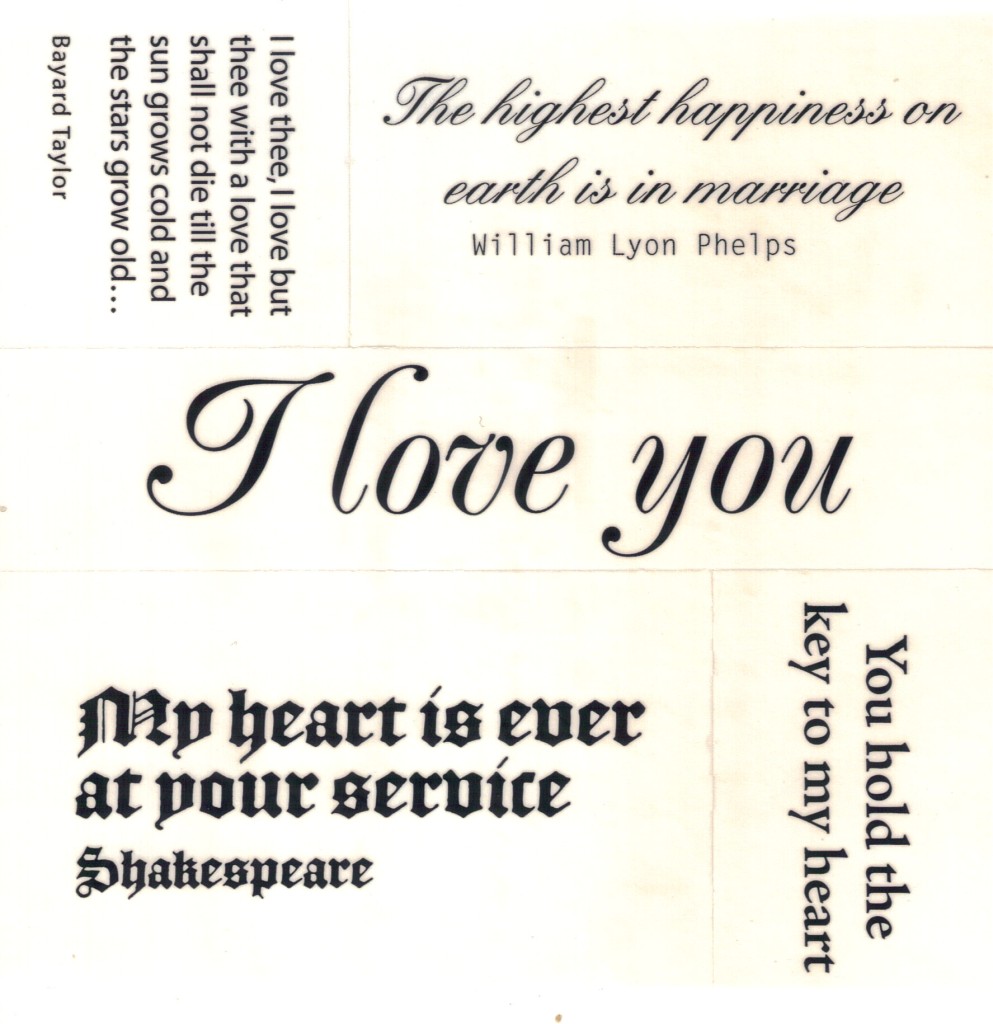 I love thee, I love but
thee with a love that
shall not die till the
sun grows cold and
the stars grow old...
Bayard Taylor
The highest happiness on
earth is in marriage
William Lyon Phelps
I love you
My heart is ever
at your service
Shakespeare
You hold the
key to my heart